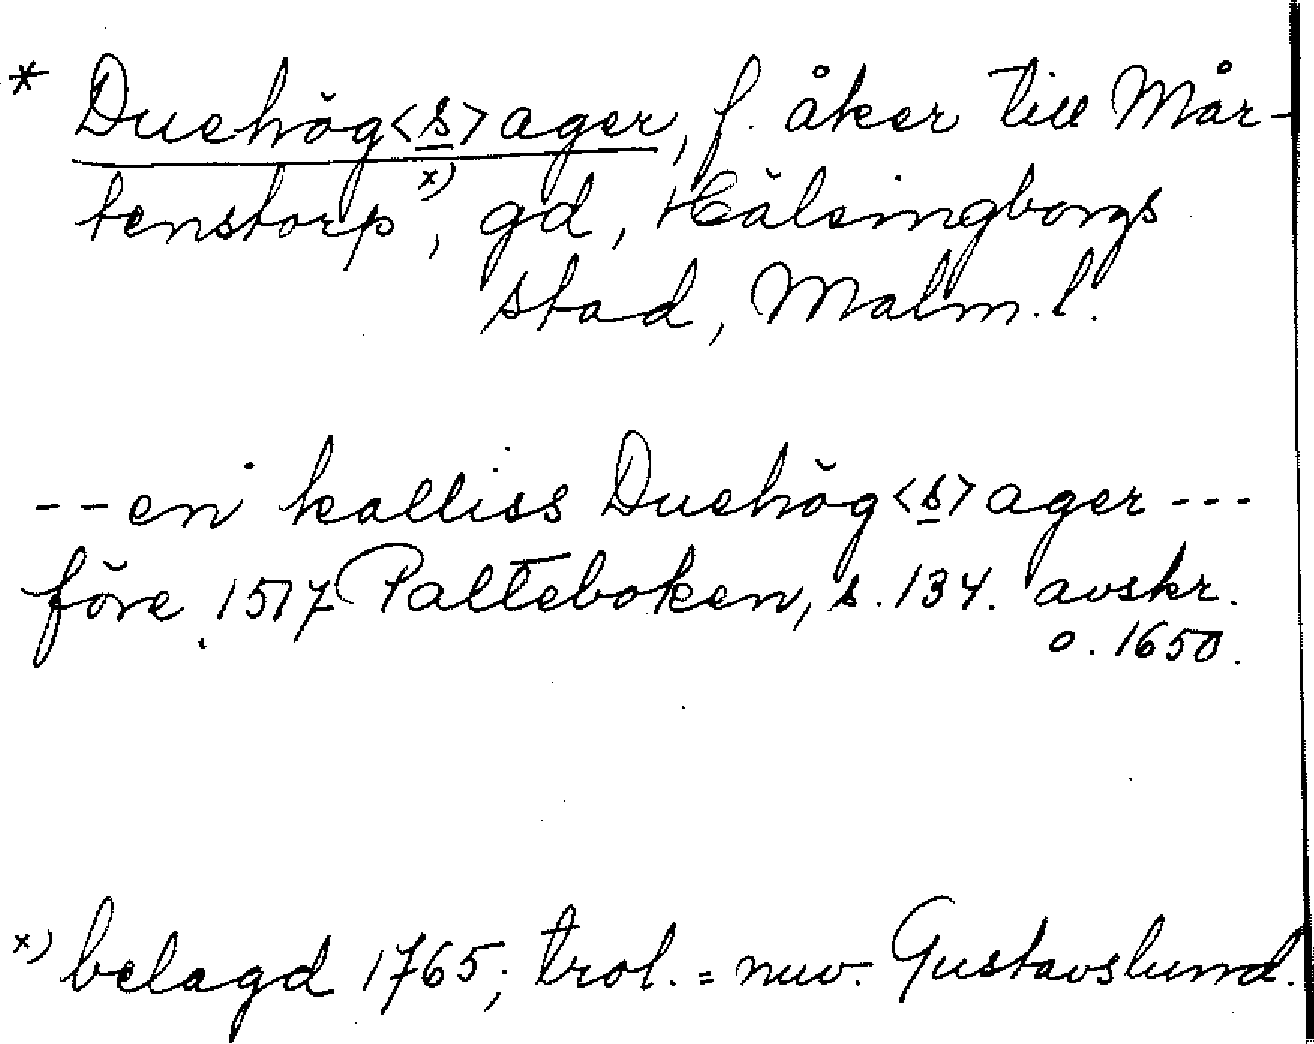 * Duehög<s>ager, f. åker till Mår-
tenstorp x), gd, Hälsingborgs
stad, Malm. l.
--en kalliss Duehög<s>ager---
före 1517 Palteboken, s. 134. avskr.
o. 1650.
x) belagd 1765; trol. = nuv. Gustavslund.